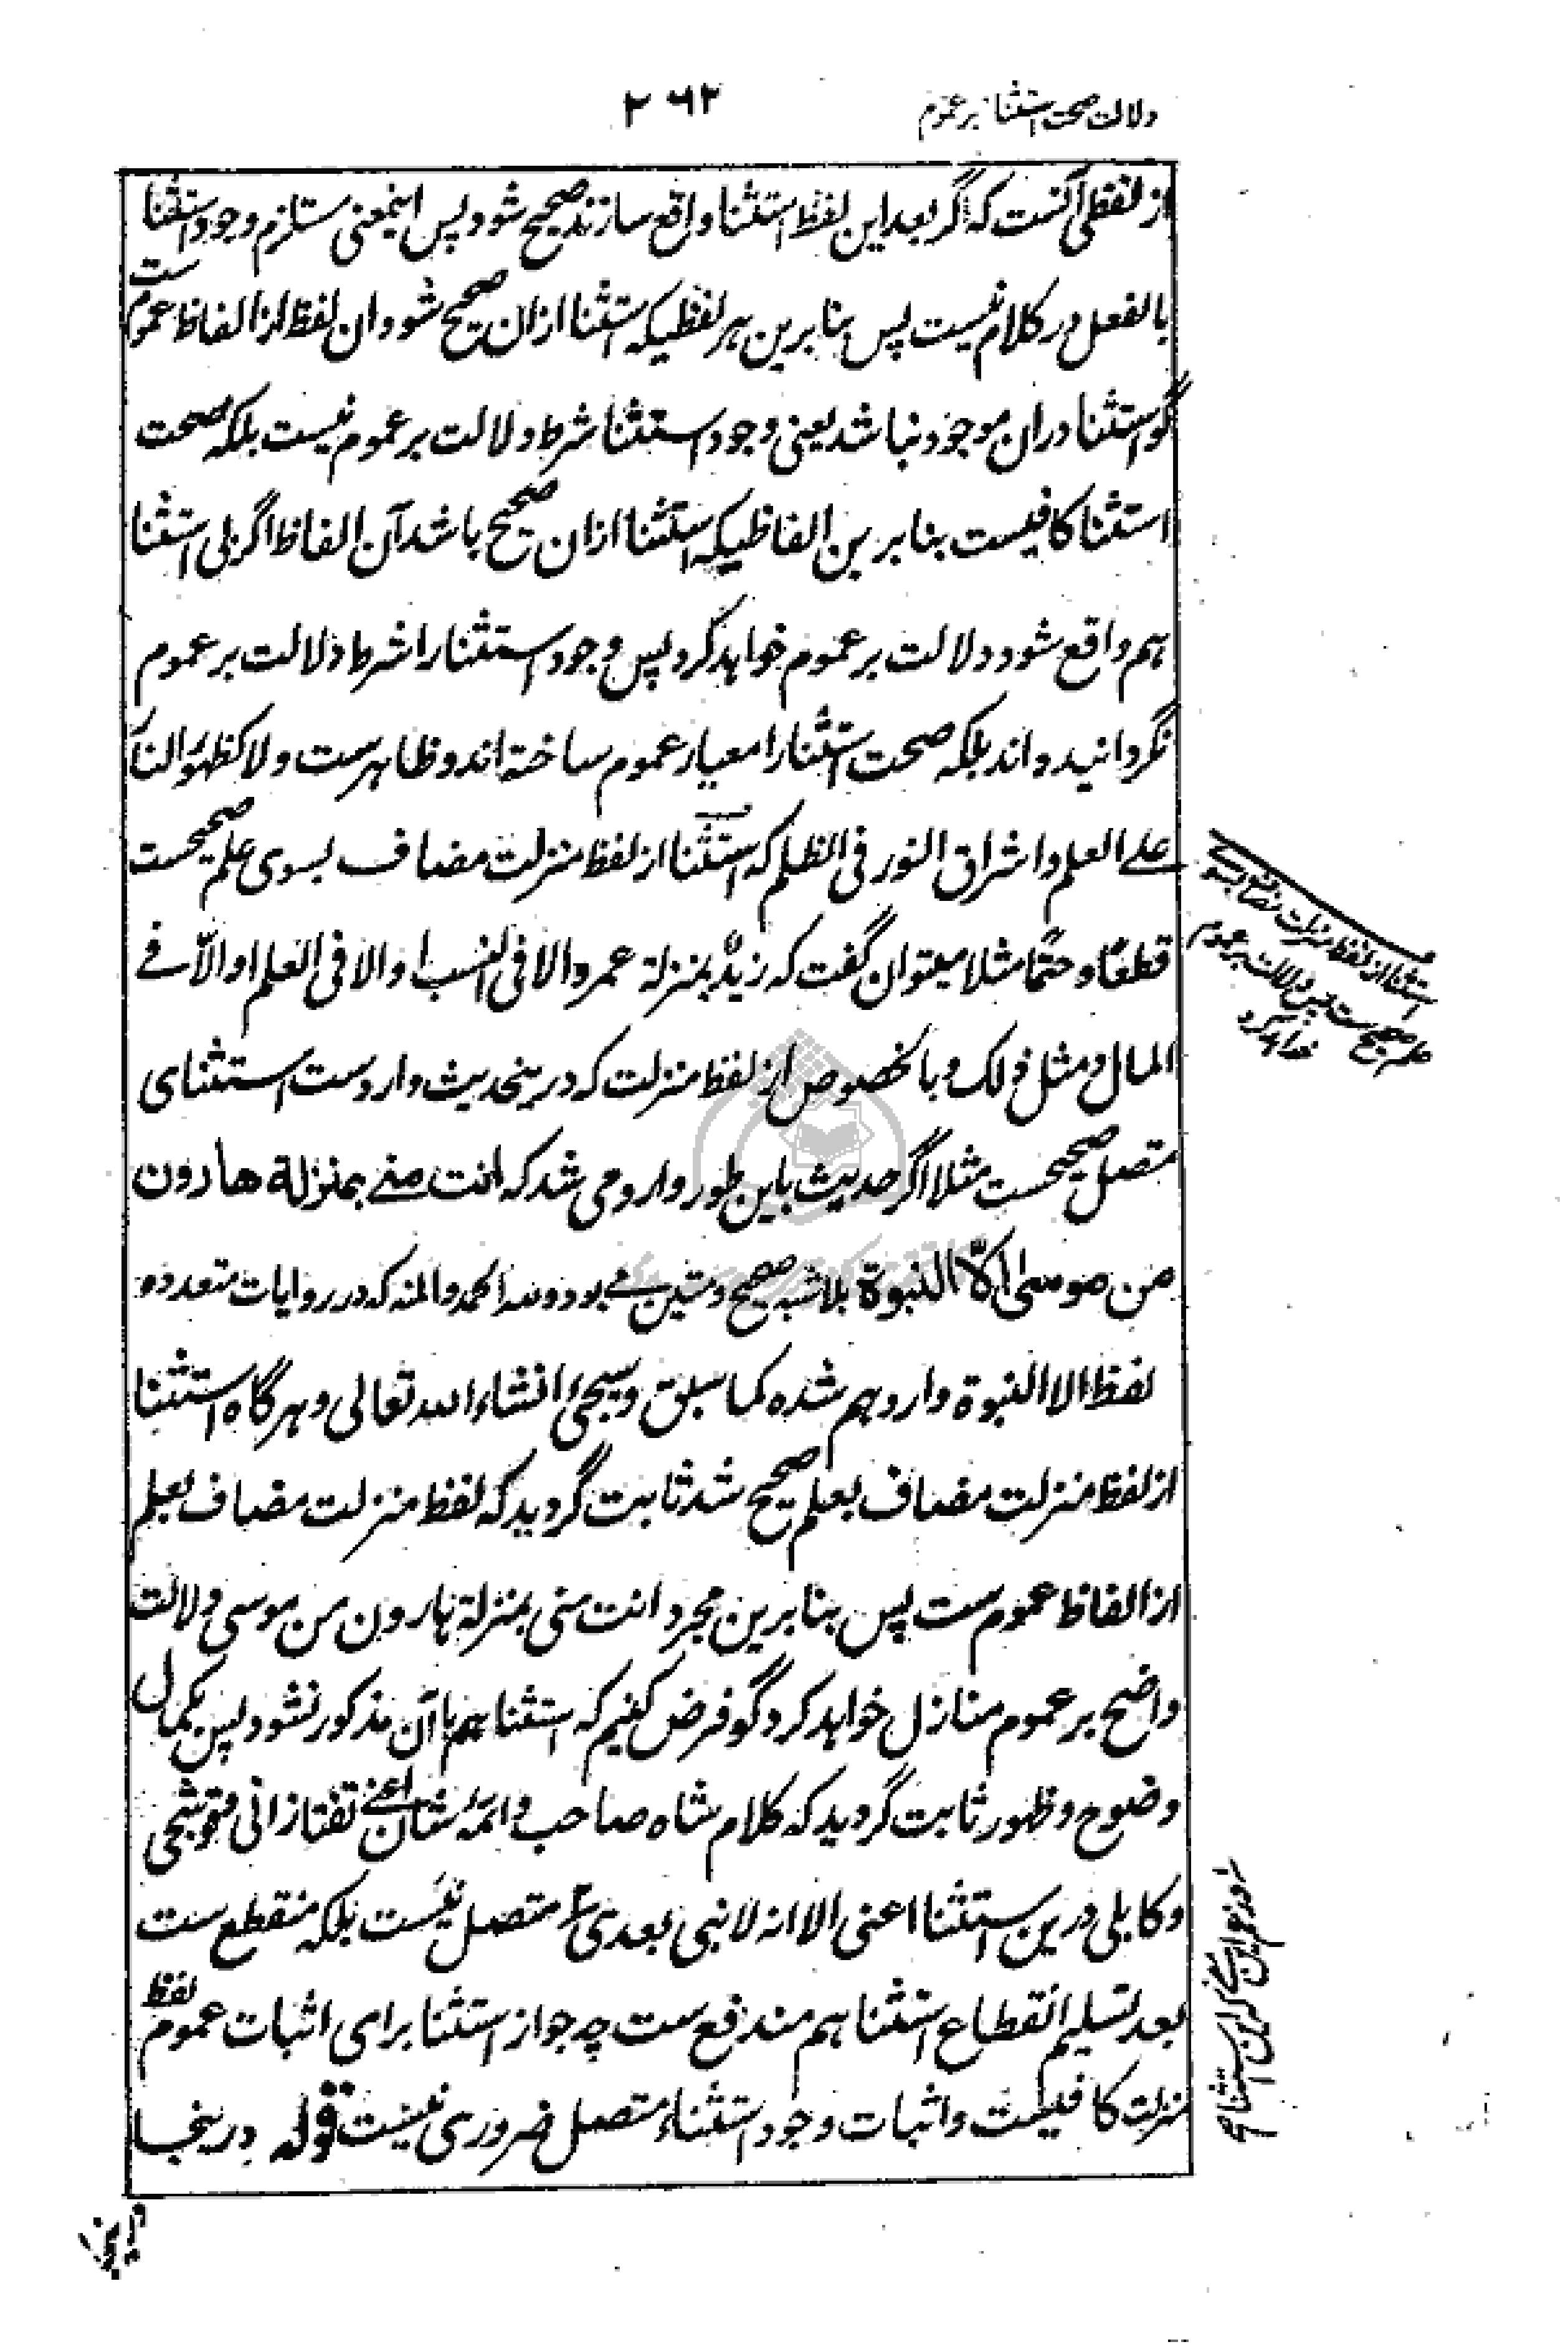 دلالت صحت استثنا بر عموم
۲۶۲
از لفظی آنست که اگر بعد این لفظ استثنا واقع سازند صحیح شود پس اینمعنی مستلزم وجود استثنا
بالفعل در کلام نیست پس بنابرین هر لفظیکه استثنا ازان صحیح شود ان لفظ از الفاظ عموم ست
گو استثنا دران موجود نباشد یعنی وجود استثنا شرط دلالت بر عموم نیست بلکه صحت
استثنا کافیست بنابرین الفاظیکه استثنا ازان صحیح باشد آن الفاظ اگر بی استثنا
هم واقع شود دلالت بر عموم خواهد کرد پس وجود استثنا را شرط دلالت بر عموم
نگردانیده اند بلکه صحت استثنا را معیار عموم ساخته اند و ظاهرست ولا کظهور النار
علے العلم و اشراق النور فی الظلم که استثنا از لفظ منزلت مضاف بسوی علم صحیحست
قطعًا و حتمًا مثلا میتوان گفت که زیدٌ بمنزلة عمرو الا فی النسب او الا فی العلم او الّا فے
المال و مثل ذلک و بالخصوص از لفظ منزلت که درینحدیث واردست استثنای
متصل صحیحست مثلا اگر حدیث باین طور وارد می شد که انت منے بمنزلة هارون
من موسیٰ الّا النبوة بلا شبه صحیح و متین مے بود و لله الحمد والمنه که در روایات متعدده
لفظ الا النبوة وارد هم شده کما سبق و سیجئ انشاء الله تعالی و هرگاه استثنا
از لفظ منزلت مضاف بعلم صحیح شد ثابت گردید که لفظ منزلت مضاف بعلم
از الفاظ عموم ست پس بنابرین مجرد انت منی بمنزلة هارون من موسی دلالت
واضح بر عموم منازل خواهد کرد گو فرض کنیم که استثنا هم با آن مذکور نشود پس بکمال
وضوح و ظهور ثابت گردید که کلام شاه صاحب و ائمه شان اعنے تفتازانی و قوشجی
و کابلی درین استثنا اعنی الا انه لا نبی بعدی متصل نیست بلکه منقطع ست
بعد تسلیم انقطاع استثنا هم مندفع ست چه جواز استثنا برای اثبات عموم لفظ
منزلت کافیست و اثبات وجود استثناء متصل ضروری نیست قوله درینجا
استثنا از لفظ منزلت مضاف بسوے
علم صحیح ست پس دلالت بر عموم
خواهد کرد
درینجا